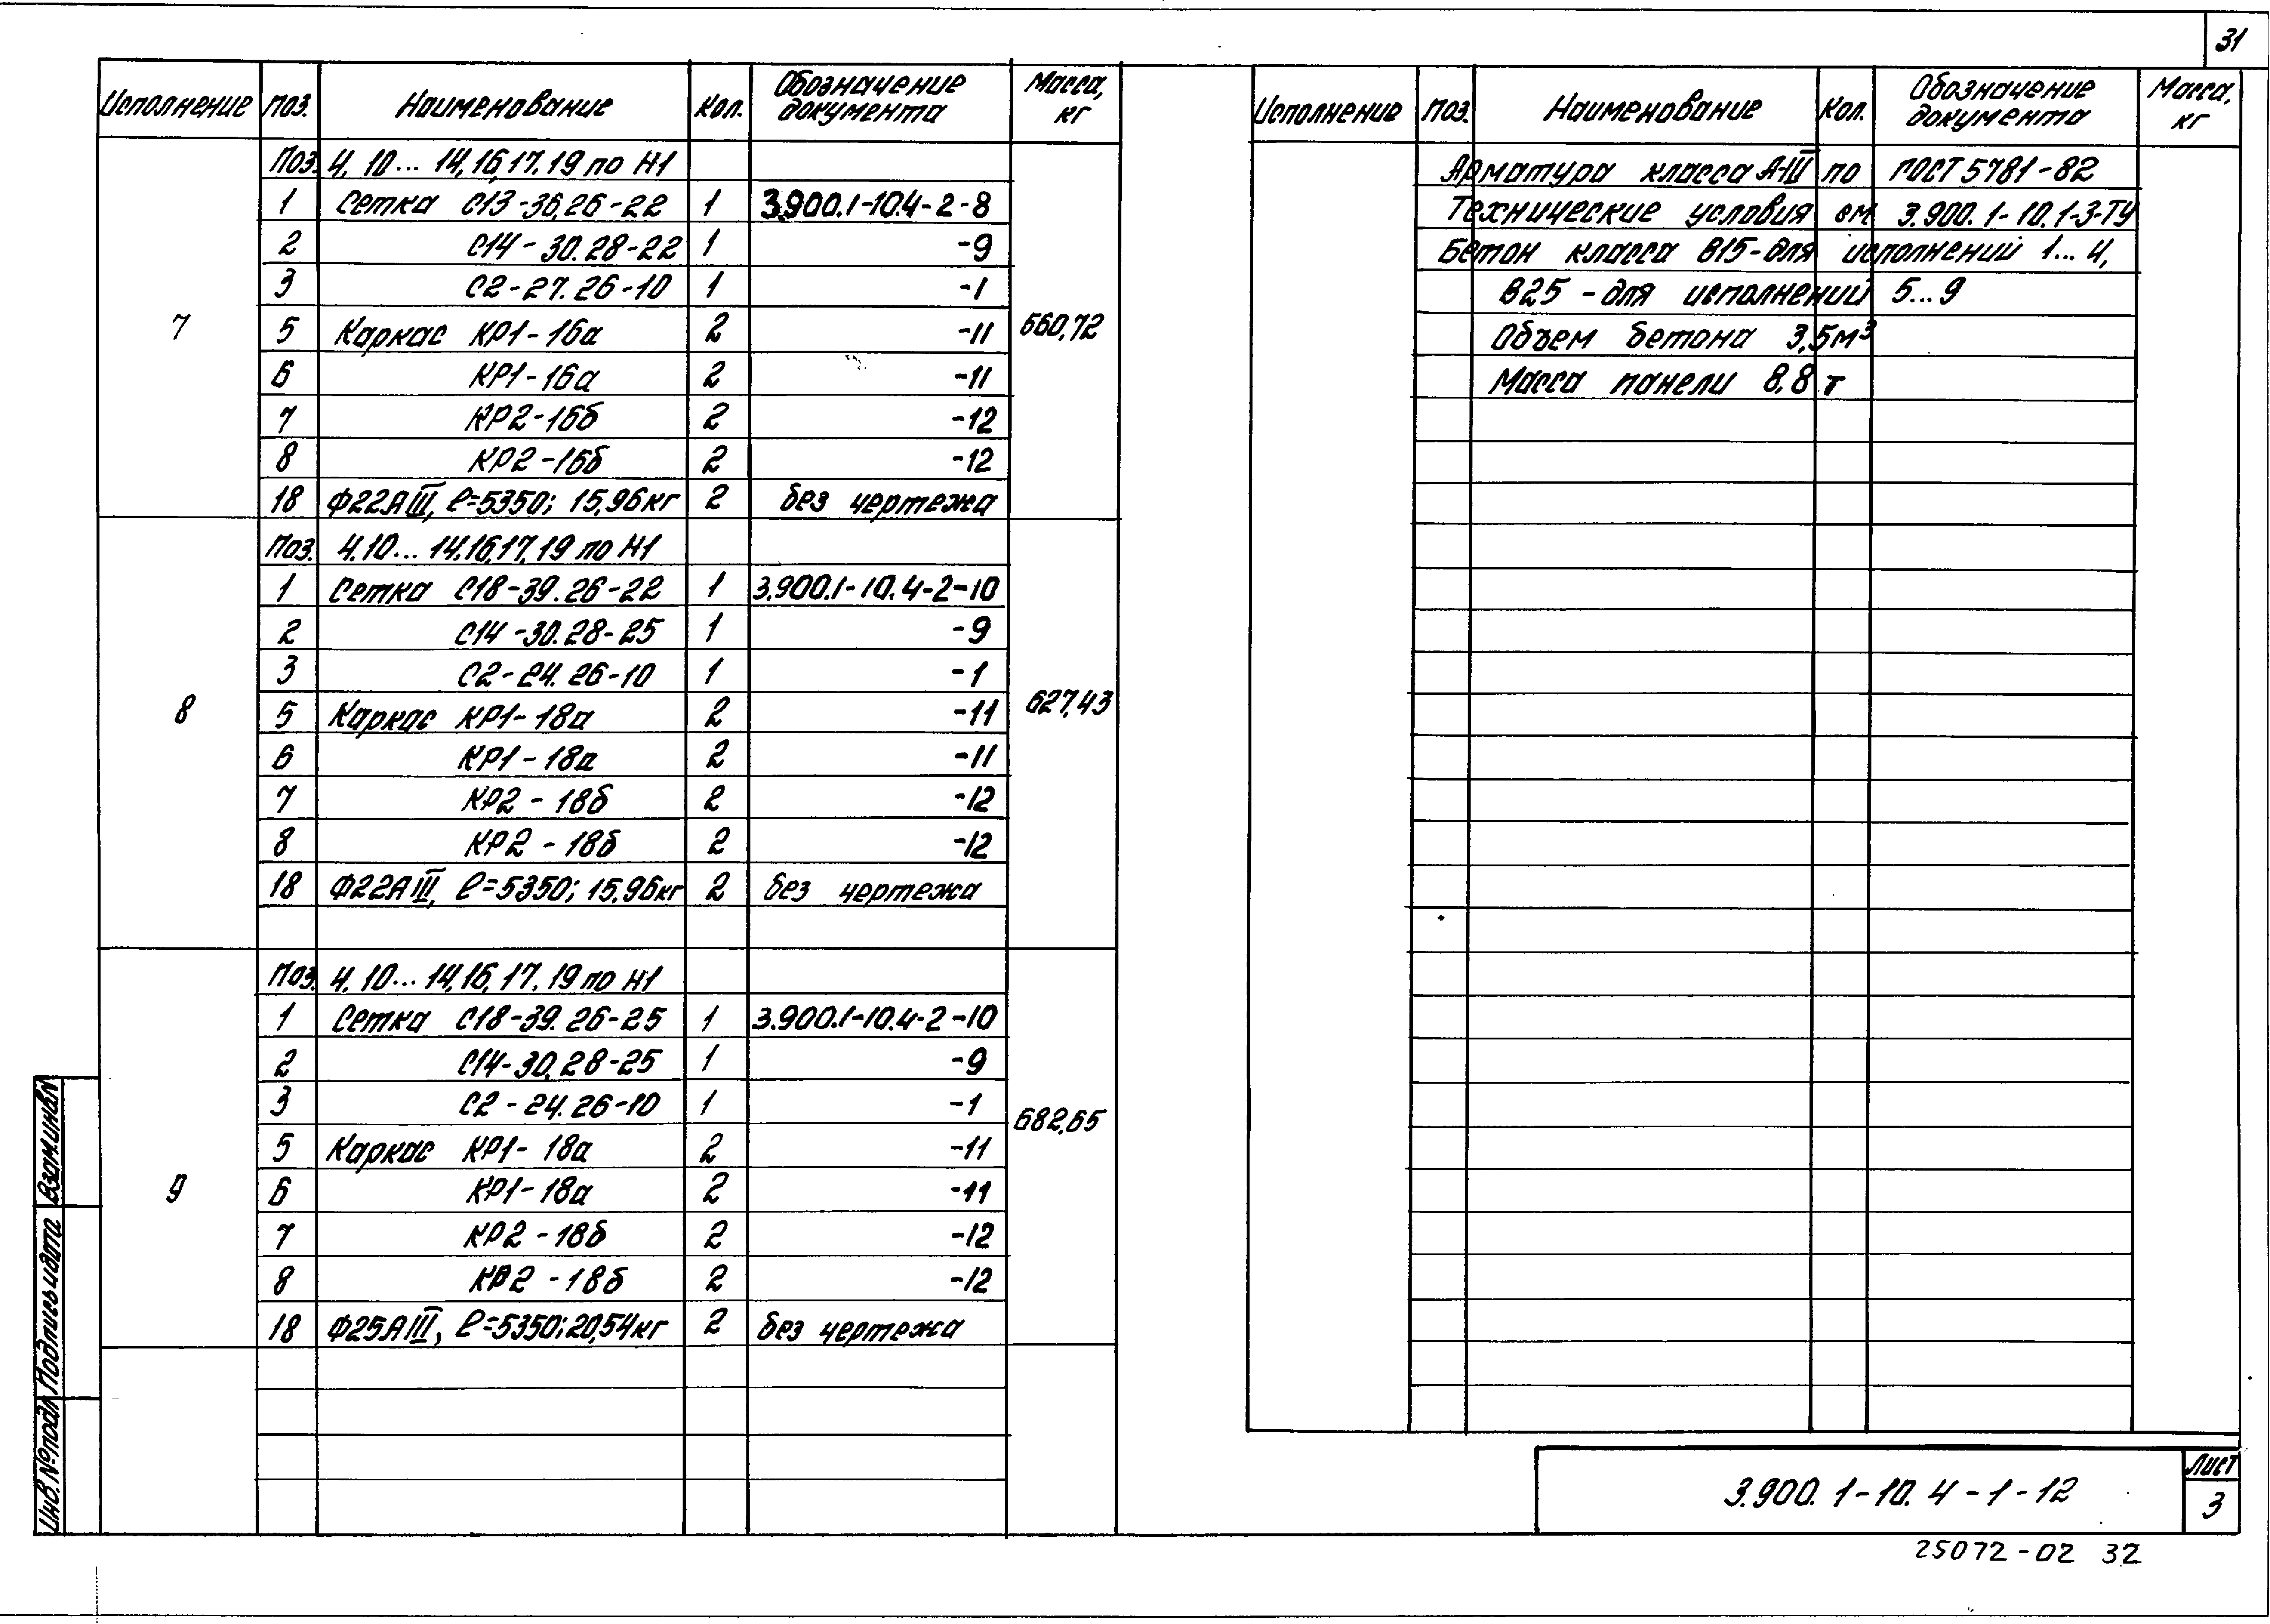 31
Исполнение Поз. Наименование Кол. Обозначение документа Масса, кг
Поз. 4, 10... 14, 16, 17, 19 по Н1
1 Сетка С13-36.26-22 1 3.900.1-10.4-2-8
2 С14-30.28-22 1 -9
3 С2-27.26-10 1 -1
7 5 Каркас КР1-16а 2 -11 560,72
6 КР1-16а 2 -11
7 КР2-16б 2 -12
8 КР2-16б 2 -12
18 Ф22АIII, ℓ=5350; 15,96кг 2 без чертежа
Поз. 4, 10... 14, 16, 17, 19 по Н1
1 Сетка С18-39.26-22 1 3.900.1-10.4-2-10
2 С14-30.28-25 1 -9
3 С2-24.26-10 1 -1
8 5 Каркас КР1-18а 2 -11 627,43
6 КР1-18а 2 -11
7 КР2-18б 2 -12
8 КР2-18б 2 -12
18 Ф22АIII, ℓ=5350; 15,96кг 2 без чертежа
Поз. 4, 10... 14, 16, 17, 19 по Н1
1 Сетка С18-39.26-25 1 3.900.1-10.4-2-10
2 С14-30.28-25 1 -9
3 С2-24.26-10 1 -1
682,65
5 Каркас КР1-18а 2 -11
9 6 КР1-18а 2 -11
7 КР2-18б 2 -12
8 КР2-18б 2 -12
18 Ф25АIII, ℓ=5350; 20,54кг 2 без чертежа
Исполнение Поз. Наименование Кол. Обозначение документа Масса, кг
Арматура класса А-III по ГОСТ 5781-82
Технические условия см 3.900.1-10.1-3-ТУ
Бетон класса В15-для исполнений 1...4,
В25-для исполнений 5...9
Объем бетона 3,5м³
Масса панели 8,8 т
Инв.№подл Подпись и дата Взам.инв№
3.900.1-10.4-1-12
Лист
3
25072-02 32